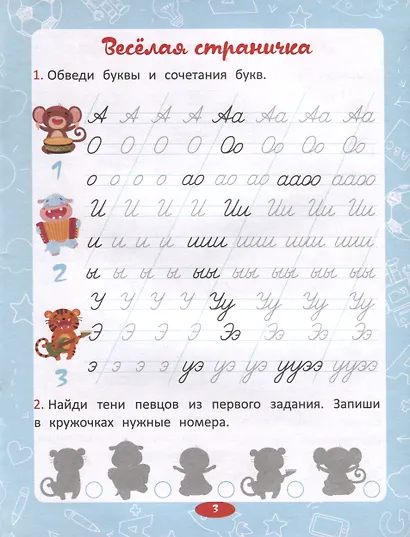 Весёлая страничка
1. Обведи буквы и сочетания букв.
А А А А Аа Аа Аа Аа
О О О О Оо Оо Оо Оо
1
о о о о ао ао ао аоао аоао
И И И И Ии Ии Ии Ии
и и и и иш иши иши иши иши
2
ы ы ы ы ыы ыы ыы ыы ыы
У У У У Уу Уу Уу Уу
Э Э Э Э Ээ Ээ Ээ Ээ
3
э э э э уэ уэ ууээ ууээ
2. Найди тени певцов из первого задания. Запиши
в кружочках нужные номера.
3